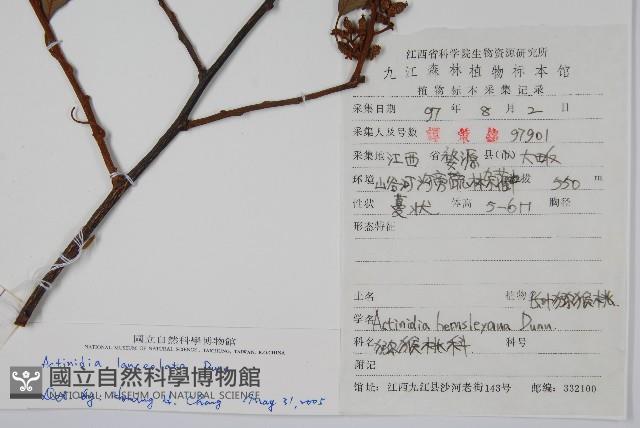 江西省科学院生物资源研究所
九江森林植物标本馆
植物标本采集记录
采集日期 97 年 8 月 2 日
采集人及号数 譚策銘 97901
采集地 江西 省 婺源 县(市) 大畈
环境 山谷河沟旁疏林 拔 550 m
性状 蔓状 体高 5-6m 胸径
形态特征
土名 植物名 猕猴桃
学名 Actinidia hemsleyana Dunn
科名 猕猴桃科 科号
附记
馆址:江西九江县沙河老街143号 邮编:332100
國立自然科學博物館
NATIONAL MUSEUM OF NATURAL SCIENCE, TAICHUNG, TAIWAN, R.O.CHINA
Actinidia lanceolata Dunn
Det. by: Chang May 31, 2005
國立自然科學博物館
NATIONAL MUSEUM OF NATURAL SCIENCE